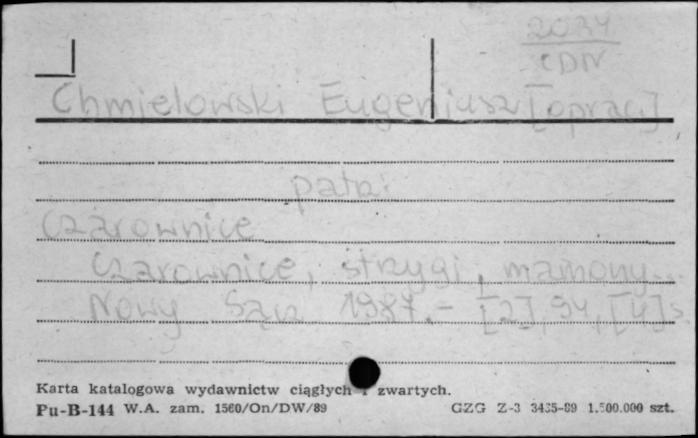 2034
CDN
Chmielowski Eugeniusz [oprac.]
patrz:
Czarownice
Czarownice, strzygi, mamony...
Nowy Sącz 1987. - [2], 94, [4] s.
Karta katalogowa wydawnictw ciągłych i zwartych.
Pu-B-144 W.A. zam. 1560/On/DW/89 GZG Z-3 3435-89 1.500.000 szt.